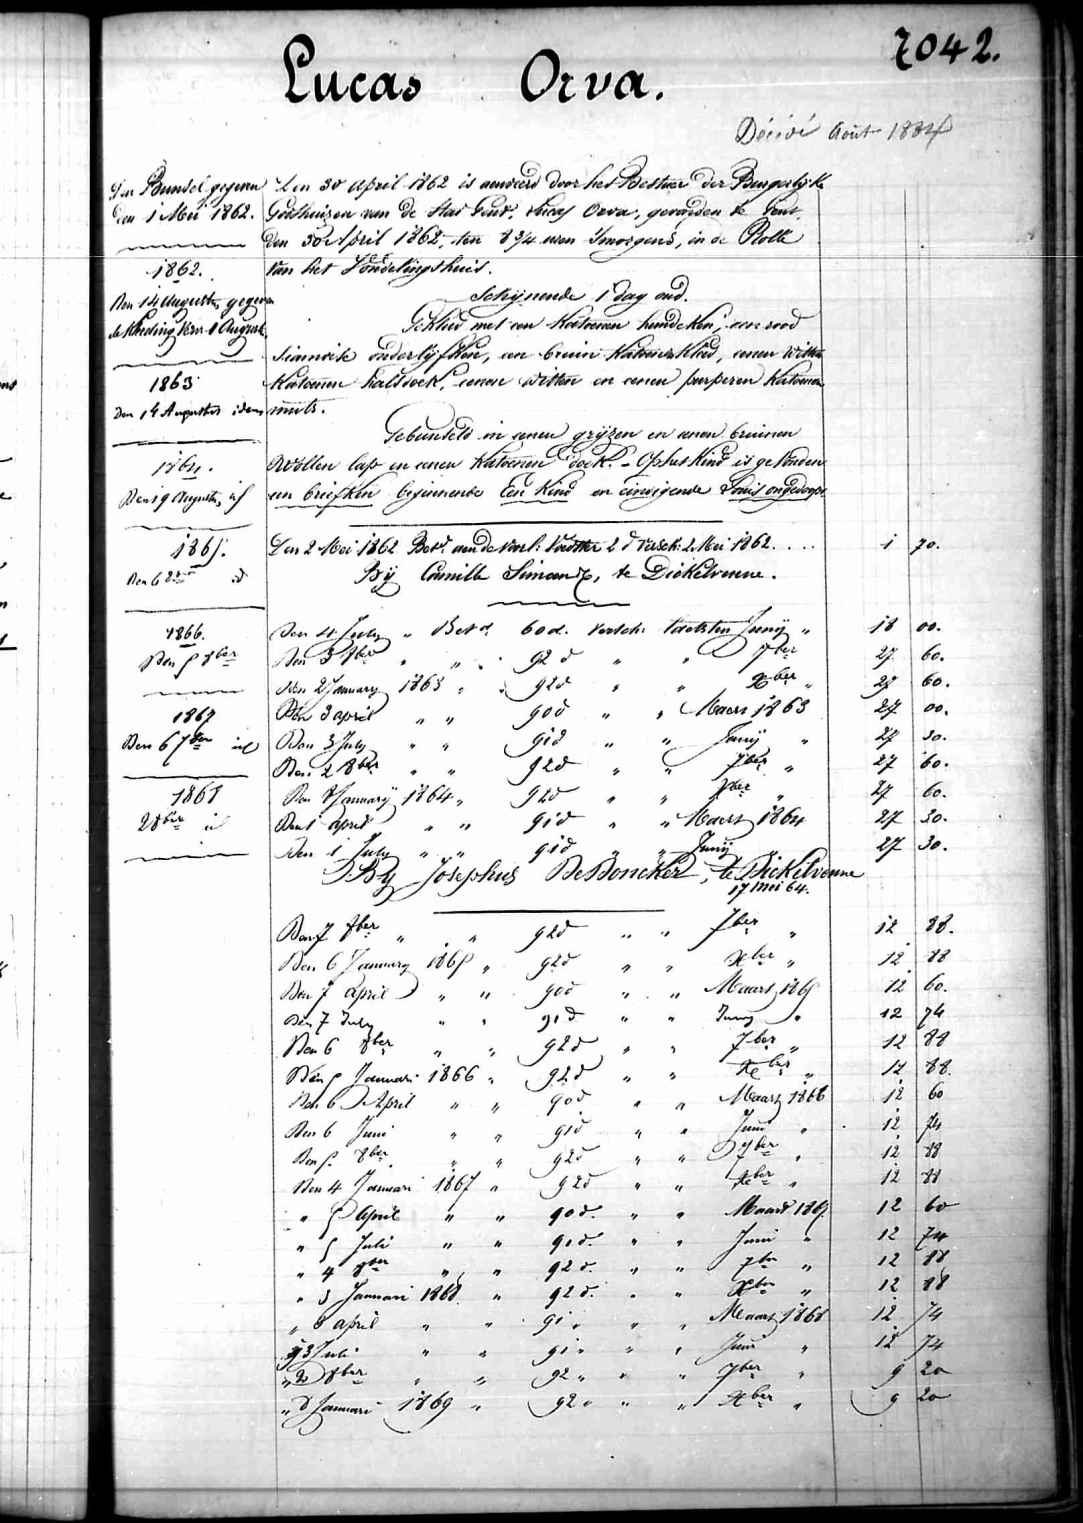 7042.
Lucas Orva.
Décidé Août 1884
Den Bundel gegeven
den 1 Mei 1862.
1862.
Den 14 Augustus gegeven
de Kleeding van 1 August
1863
Den 14 Augustus idem
1864.
Den 19 Augustus id
1865.
Den 6 id
1866.
Den 5 8ber
1867
Den 6 7ber id
1868
2 8ber id
Den 30 April 1862 is aenveerd door het Bestuer der Burgerlyke
Godshuizen van de Stad Gend, Lucas Orva, gevonden te Gend,
den 30 April 1862, ten 8 3/4 uren 'smorgens, in de Rolle
van het Vondelingshuis.
Schynende 1 dag oud.
Gekleed met een Katoenen hemdeken, een rood
siamoise onderlyfken, een bruin Katoenen Kleed, eenen witten
Katoenen halsdoek, eenen witten en eenen purperen Katoenen
muts.
Gebunseld in eenen gryzen en eenen bruinen
Wollen lap en eenen Katoenen doek. - Op het Kind is gevonden
een briefken beginnende Een Kind en eindigende Louis ongedoopt
Den 2 Mei 1862 Betd. aen de voorl: Voedster 2 d versch: 2 Mei 1862.... 1 70.
By Camille Simoens, te Dickelvenne.
Den 4 July " Betd. 60 d. versch: laetsten Juny " 18 00.
Den 3 8ber " " 92 d " " 7ber 27 60.
Den 2 January 1863 " 92 d " " Xber " 27 60.
Den 3 april " " 90 d " " Maers 1863 27 00.
Den 3 July " " 91 d " " Juny " 27 30.
Den 2 8ber " " 92 d " " 7ber " 27 60.
Den 8 January 1864 " 92 d " " Xber " 27 60.
Den 1 april " " 91 d " " Maert 1864 27 30.
Den 1 July " " 91 d " " Juny " 27 30.
By Josephus DeDoncker, te Dickelvenne
17 Mei 64.
Den 7 8ber " " 92 d " " 7ber " 12 88.
Den 6 January 1865 " 92 d " " Xber " 12 88
Den 7 april " " 90 d " " Maart 1865 12 60.
Den 7 July " " 91 d " " Juny " 12 74
Den 6 8ber " " 92 d " " 7ber " 12 88
Den 5 Januari 1866 " 92 d " " Xber " 12 88.
Den 6 April " " 90 d " " Maart 1866 12 60
Den 6 Juni " " 91 d " " Juni " 12 74
Den 5 8ber " " 92 d " " 7ber " 12 88
Den 4 Januari 1867 " 92 d " " Xber " 12 88
" 5 April " " 90 d. " " Maart 1867 12 60
" 5 Juli " " 91 d. " " Juni " 12 74
" 4 8ber " " 92 d. " " 7ber " 12 88
" 3 Januari 1868 " 92 d. " " Xber " 12 88
" 3 april " " 91 " " " Maart 1868 12 74
" 3 Juli " " 91 " " " Juni " 12 74
" 2 8ber " " 92 " " " 7ber " 9 20
" 8 Januari 1869 " 92 " " " Xber " 9 20